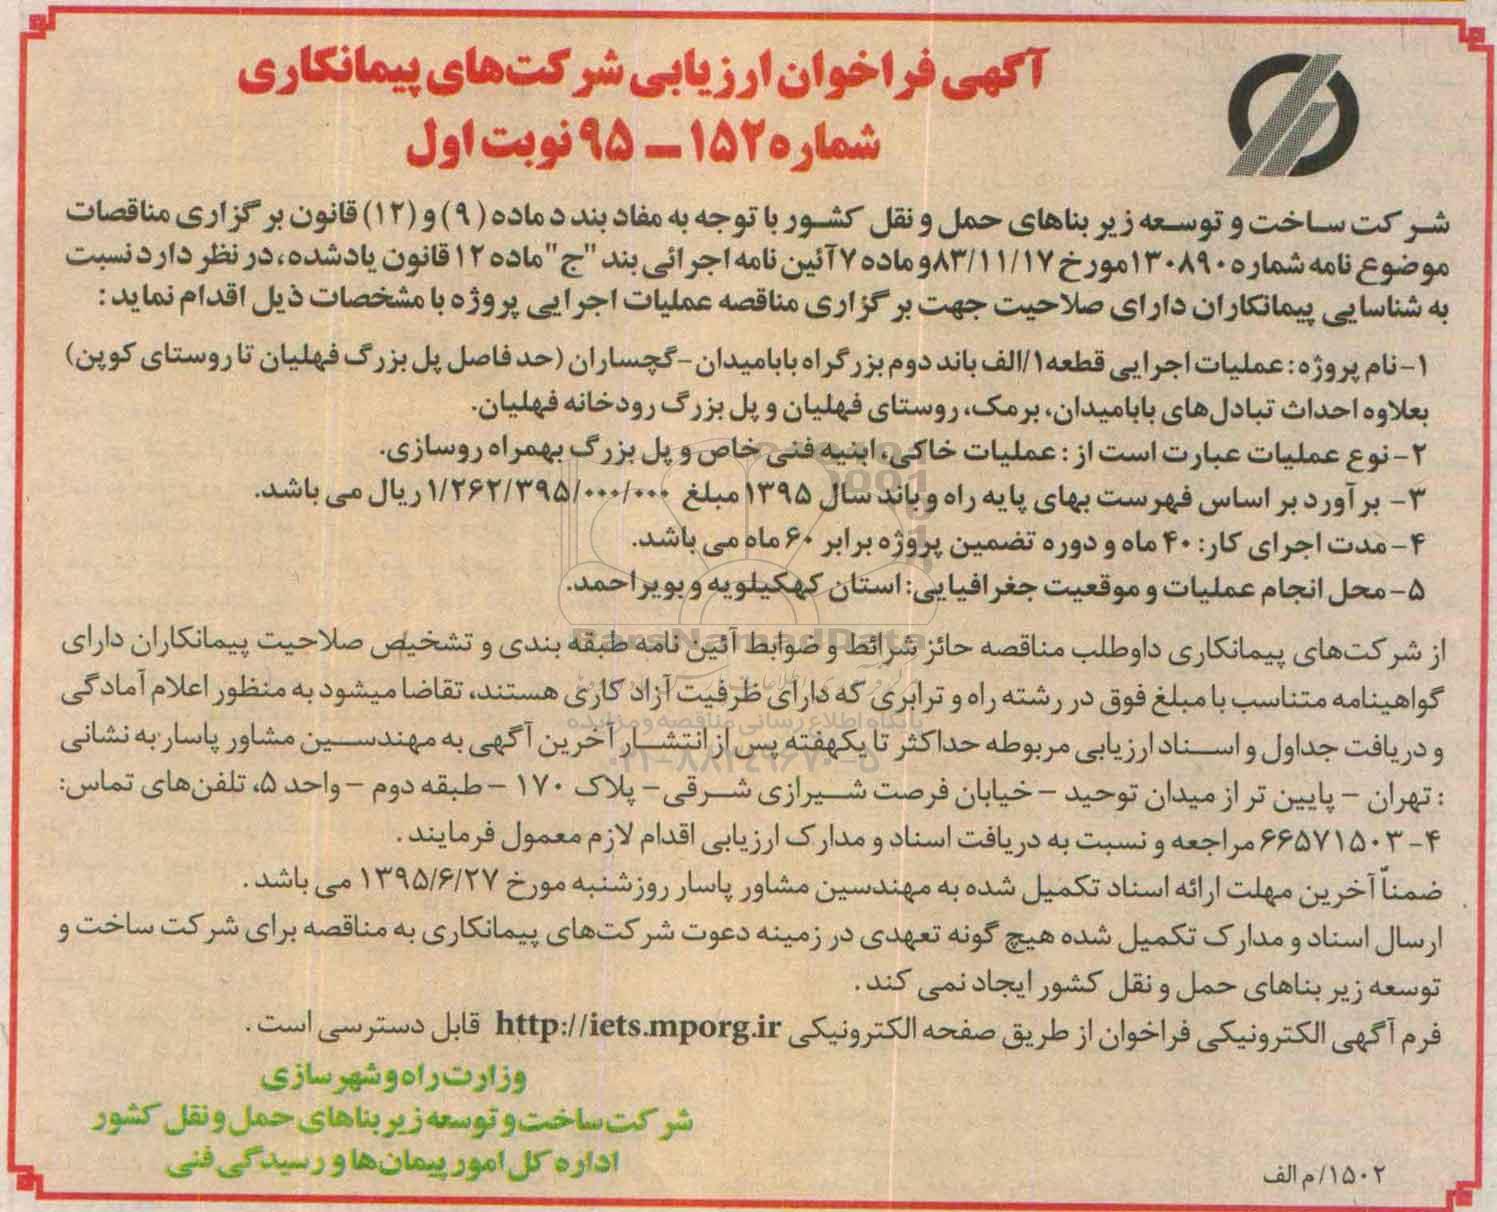 آگهی فراخوان ارزیابی شرکت‌های پیمانکاری
شماره ۱۵۲ – ۹۵ نوبت اول
شرکت ساخت و توسعه زیر بناهای حمل و نقل کشور با توجه به مفاد بند د ماده (۹) و (۱۲) قانون برگزاری مناقصات
موضوع نامه شماره ۱۳۰۸۹۰ مورخ ۸۳/۱۱/۱۷ و ماده ۷ آئین نامه اجرائی بند "ج" ماده ۱۲ قانون یادشده، در نظر دارد نسبت
به شناسایی پیمانکاران دارای صلاحیت جهت برگزاری مناقصه عملیات اجرایی پروژه با مشخصات ذیل اقدام نماید:
۱- نام پروژه: عملیات اجرایی قطعه ۱/الف باند دوم بزرگراه بابامیدان-گچساران (حد فاصل پل بزرگ فهلیان تا روستای کوپن)
بعلاوه احداث تبادل‌های بابامیدان، برمک، روستای فهلیان و پل بزرگ رودخانه فهلیان.
۲- نوع عملیات عبارت است از: عملیات خاکی، ابنیه فنی خاص و پل بزرگ بهمراه روسازی.
۳- برآورد بر اساس فهرست بهای پایه راه و باند سال ۱۳۹۵ مبلغ ۱/۲۶۲/۳۹۵/۰۰۰/۰۰۰ ریال می باشد.
۴- مدت اجرای کار: ۴۰ ماه و دوره تضمین پروژه برابر ۶۰ ماه می باشد.
۵- محل انجام عملیات و موقعیت جغرافیایی: استان کهکیلویه و بویراحمد.
از شرکت‌های پیمانکاری داوطلب مناقصه حائز شرائط و ضوابط آئین نامه طبقه بندی و تشخیص صلاحیت پیمانکاران دارای
گواهینامه متناسب با مبلغ فوق در رشته راه و ترابری که دارای ظرفیت آزاد کاری هستند، تقاضا میشود به منظور اعلام آمادگی
و دریافت جداول و اسناد ارزیابی مربوطه حداکثر تا یکهفته پس از انتشار آخرین آگهی به مهندسین مشاور پاسار به نشانی
: تهران – پایین تر از میدان توحید – خیابان فرصت شیرازی شرقی- پلاک ۱۷۰ – طبقه دوم – واحد ۵، تلفن‌های تماس:
۴- ۶۶۵۷۱۵۰۳ مراجعه و نسبت به دریافت اسناد و مدارک ارزیابی اقدام لازم معمول فرمایند.
ضمناً آخرین مهلت ارائه اسناد تکمیل شده به مهندسین مشاور پاسار روزشنبه مورخ ۱۳۹۵/۶/۲۷ می باشد.
ارسال اسناد و مدارک تکمیل شده هیچ گونه تعهدی در زمینه دعوت شرکت‌های پیمانکاری به مناقصه برای شرکت ساخت و
توسعه زیر بناهای حمل و نقل کشور ایجاد نمی کند.
فرم آگهی الکترونیکی فراخوان از طریق صفحه الکترونیکی http://iets.mporg.ir قابل دسترسی است.
وزارت راه و شهرسازی
شرکت ساخت و توسعه زیر بناهای حمل و نقل کشور
اداره کل امور پیمان‌ها و رسیدگی فنی
۱۵۰۲/م الف
ParsNamadData
پایگاه اطلاع رسانی مناقصه و مزایده
۰۲۱-۸۸۳۴۹۶۷۰-۵